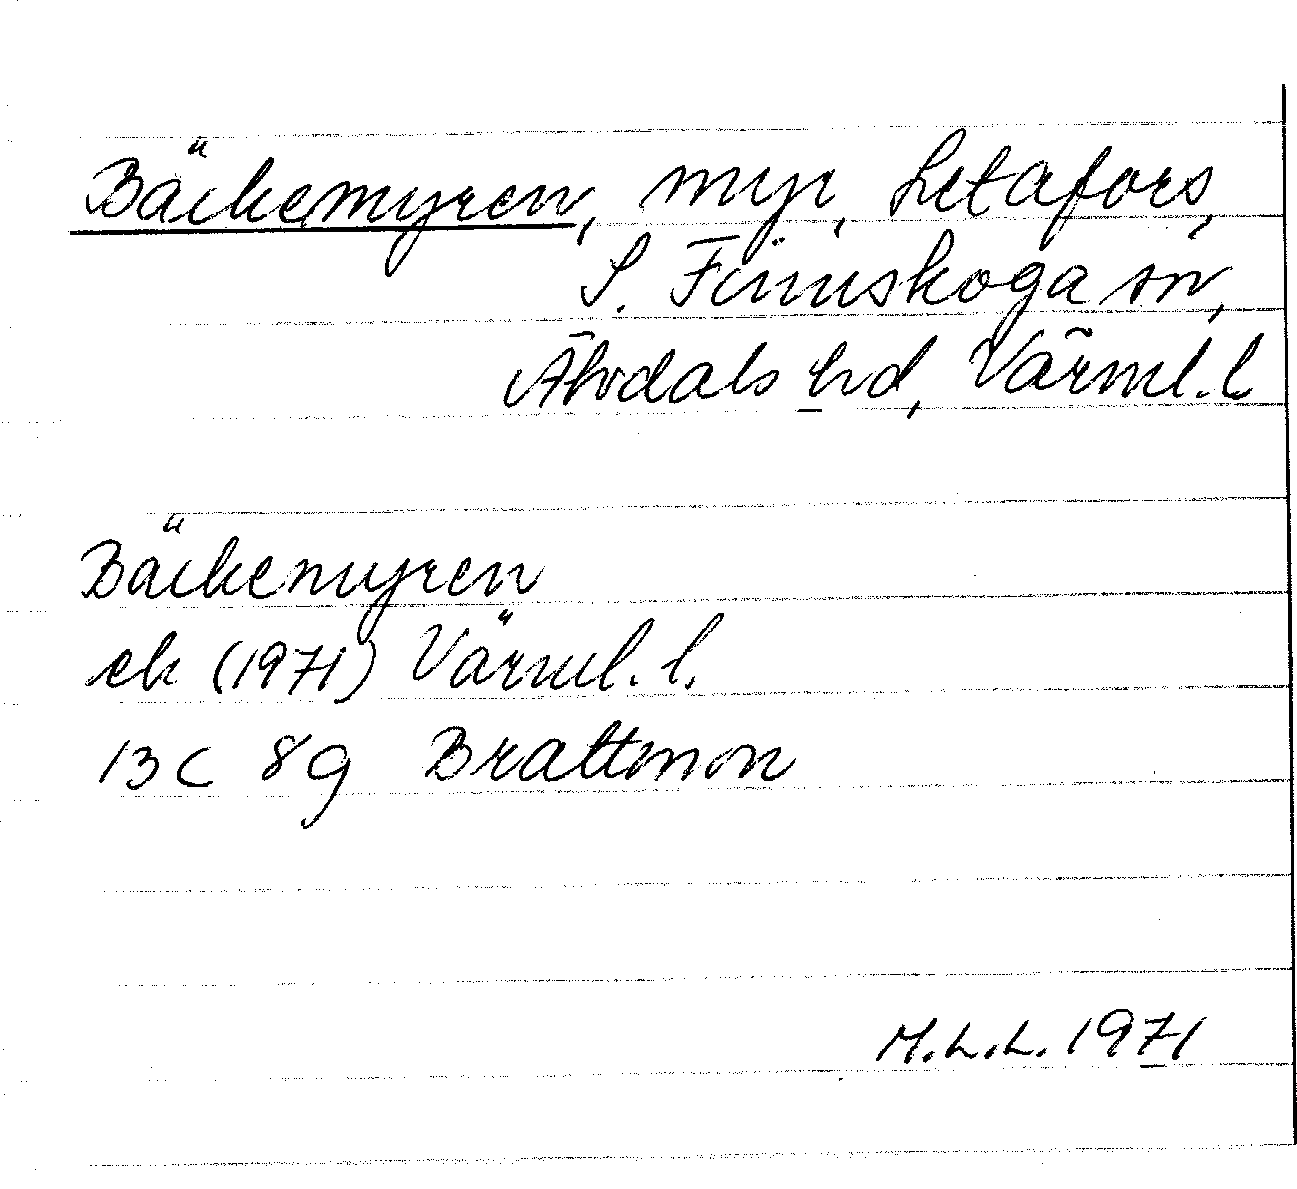 Bäckemyren, myr, Letafors,
S. Finnskoga sn,
Älvdals hd, Värml. l
Bäckemyren
ek (1971) Värml. l.
13 C 8 g Brattmon
M.L.L. 1971